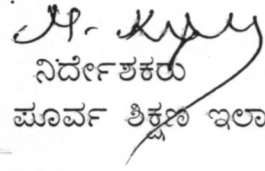 ನಿರ್ದೇಶಕರು
ಪೂರ್ವ ಶಿಕ್ಷಣ ಇಲಾ